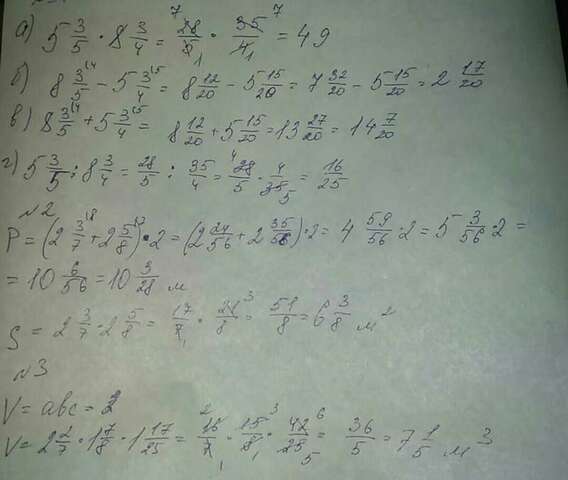 а) 5 3/5 · 8 3/4 = 28/5 · 35/4 = 49
б) 8 3/5 - 5 3/4 = 8 12/20 - 5 15/20 = 7 32/20 - 5 15/20 = 2 17/20
в) 8 3/5 + 5 3/4 = 8 12/20 + 5 15/20 = 13 27/20 = 14 7/20
г) 5 3/5 : 8 3/4 = 28/5 : 35/4 = 28/5 · 4/35 = 16/25
№2
P = (2 3/7 + 2 5/8) · 2 = (2 24/56 + 2 35/56) · 2 = 4 59/56 · 2 = 5 3/56 · 2 =
= 10 6/56 = 10 3/28 м
S = 2 3/7 · 2 5/8 = 17/7 · 21/8 = 51/8 = 6 3/8 м²
№3
V = abc = 2
V = 2 2/7 · 1 7/8 · 1 17/25 = 16/7 · 15/8 · 42/25 = 36/5 = 7 1/5 м³